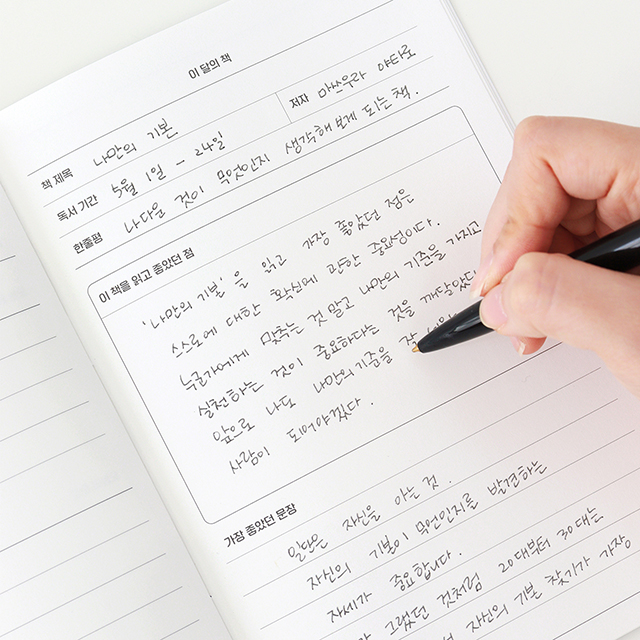 이 달의 책
책 제목 나만의 기본
저자 마쓰우라 야타로
독서 기간 5월 1일 - 24일
한줄평 나다운 것이 무엇인지 생각해 보게 되는 책.
이 책을 읽고 좋았던 점
'나만의 기본'을 읽고 가장 좋았던 점은
스스로에 대한 확신에 관한 중요성이다.
누군가에게 맞추는 것 말고 나만의 기준을 가지고
실천하는 것이 중요하다는 것을 깨달았다
앞으로 나도 나만의 기준을
사람이 되어야겠다.
가장 좋았던 문장
일단은 자신을 아는 것.
자신의 기본이 무엇인지를 발견하는
자세가 중요합니다.
그랬던 것처럼 20대부터 30대는
자신의 기본 찾기가 가장